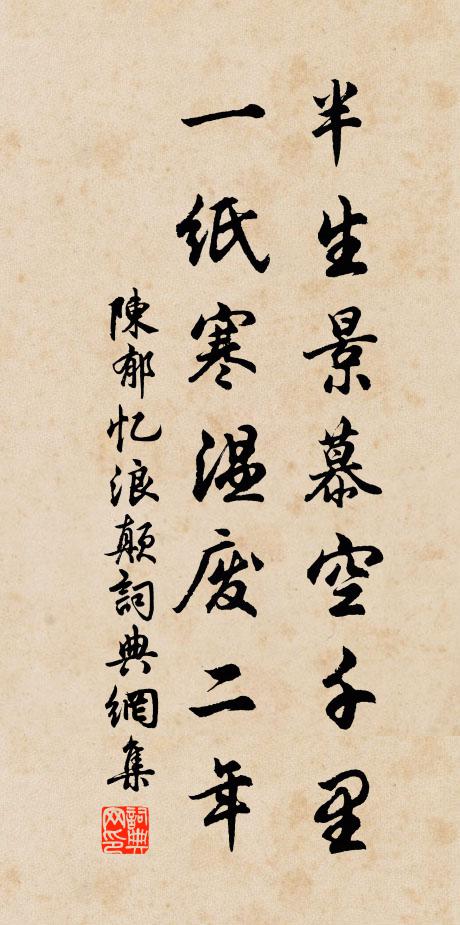 半生景慕空千里
一紙寒温废二年
陳郁忆浪颠詞典網集
詞典网印